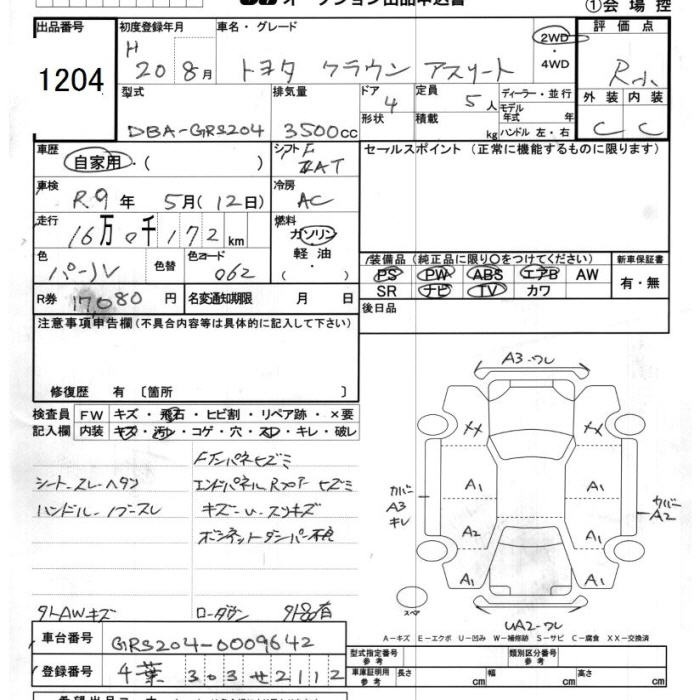 オークション出品申込書 ①会場控
出品番号 初度登録年月 車名・グレード 評価点
1204 H 20 8月 トヨタ クラウン アスリート 2WD・4WD R小
型式 排気量 ドア 定員 ディーラー・並行 外装 内装
DBA-GRS204 3500cc 4 5人 モデル年式 年 C C
形状 積載 kg ハンドル 左・右
車歴 自家用・( ) シフト F AT セールスポイント(正常に機能するものに限ります)
車検 R9年 5月(12日) 冷房 AC
走行 16万0千172km 燃料 ガソリン 軽油・( )
色 パール 色替 色コード 062
装備品(純正品に限り○をつけてください) 新車保証書
PS PW ABS エアB AW 有・無
SR ナビ TV カワ
R券 17,080円 名変通知期限 月 日 後日品
注意事項申告欄(不具合内容等は具体的に記入して下さい)
修復歴 有〔箇所 〕
検査員 FW キズ・飛石・ヒビ割・リペア跡・×要
記入欄 内装 キズ・汚れ・コゲ・穴・スレ・キレ・破レ
シートスレ・ヘタリ
ハンドル・ノブスレ
外AWキズ
エンドパネル ヒズミ
キズ
ボンネットダンパー不良
ローダウン
A3・ワレ
XX XX
A1 A1
カバーA3キレ カバーA2
A2 A1
A1 A1
スペア
UA2・ワレ
A-キズ E-エクボ U-凹み W-補修跡 S-サビ C-腐食 XX-交換済
車台番号 GRS204-0009642
登録番号 千葉 303せ2112
型式指定番号 参考 類別区分番号 参考
車庫証明用 参考 長さ cm 幅 cm 高さ cm